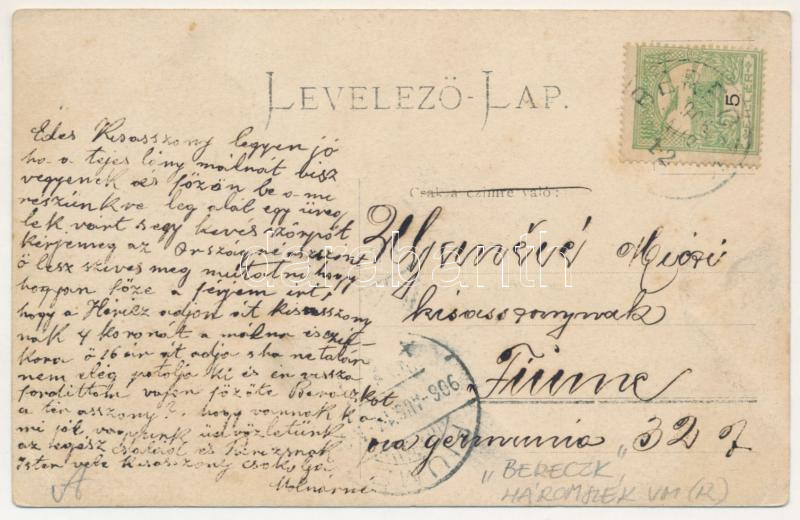 LEVELEZŐ-LAP.
Csak a czimre való:
5
Édes Kisasszony legyen jó
ha a tejes lány málnát visz
vegyenek és főzön be a mi
részünkre leg alál egy üveg
lek várt s egy kevés szörpöt
kérjemeg az Országnéasszont
ő lesz szives meg mutatni hogy
hogyan főze a férjem ért,
hogy a Hönicz adjon át kisasszony
nak 4 koronát a málna és czu-
kora ő 16 án át adja s ha netalán
nem elég potolja ki és én vissza
fordittom vajon főzöte Baraczkot
a tén asszony? hogy vannak ka-
mi jók vagyunk üdvözletünk
az egész családot és Terezsnek
Isten vele Kisasszony csokolja
Molnárné
Miczi
kisasszonynak
Fiume
via germania 32 7
FIUME
906
"BERECZK"
HÁROMSZÉK VM (R)
darabanth